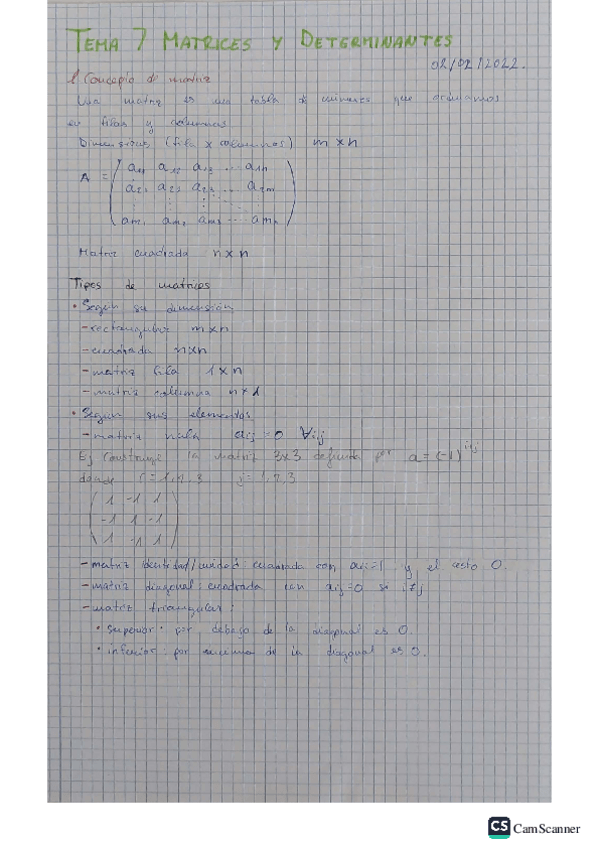 TEMA 7 MATRICES Y DETERMINANTES
02/02/2022.
1. Concepto de matriz
Una matriz es una tabla de números que ordenamos
en filas y columnas
Dimensions (fila x columnas) m x n
A = ( a11 a12 a13 ... a1n
a21 a22 a23 ... a2m
am1 am2 am3 ... amn )
Matriz cuadrada n x n
Tipos de matrices
• Segun su dimensión
- rectangular m x n
- cuadrada n x n
- matriz fila 1 x n
- matriz columna n x 1
• Segun sus elementos
- matriz nula aij = 0 ∀i,j
Ej Construye la matriz 3x3 definida por a = (-1)^i+j
donde i = 1, 2, 3 j = 1, 2, 3
( 1 -1 1
-1 1 -1
1 -1 1 )
- matriz identidad/unidad: cuadrada con aii=1 y el resto 0.
- matriz diagonal: cuadrada con aij=0 si i≠j
- matriz triangular:
• superior: por debajo de la diagonal es 0.
• inferior: por encima de la diagonal es 0.
CS CamScanner